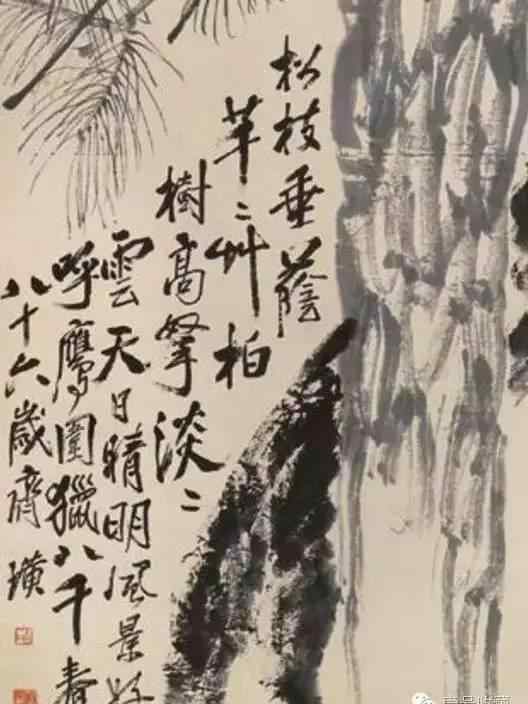 松枝垂蔭
芊〻艸柏
樹高拏淡〻
雲天日晴明風景
呼鷹圍獵八千春
八十六歲齊璜